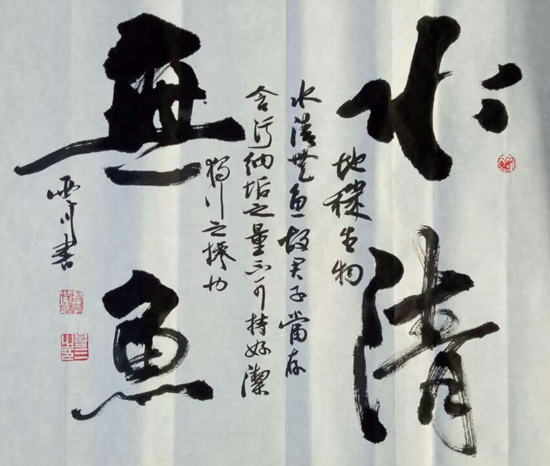 水清
無魚
地穢生物
水清無魚故君子當存
含污納垢之量不可持好潔
獨行之操也
西川書